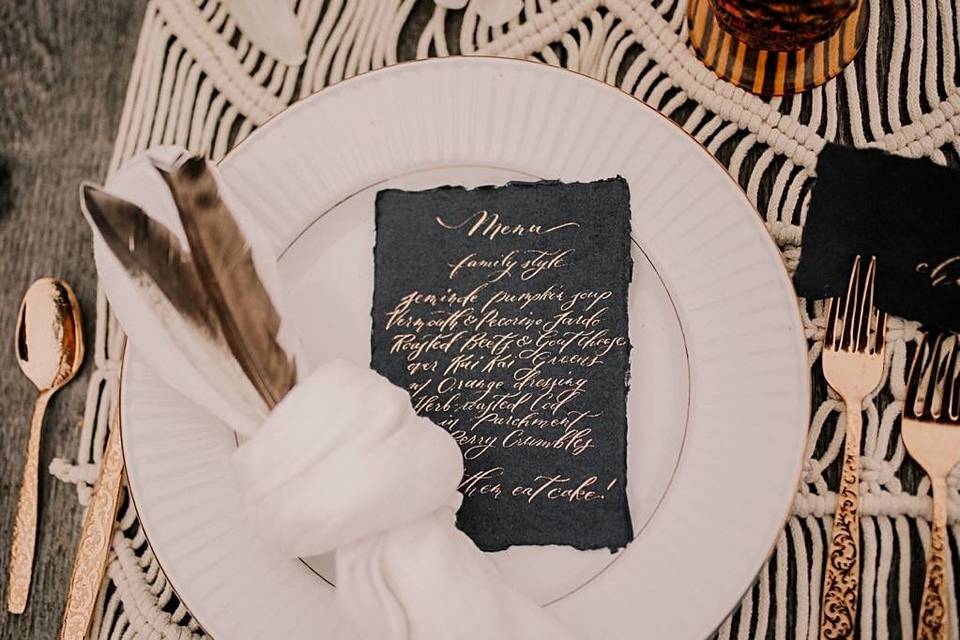 Menu
family style
pumpkin soup
Vermouth & Pecorino
Roasted Beets & Goat Cheese
Kai Kai Greens
w/ Orange dressing
Herb-roasted Cod
in Parchment
Berry Crumbles
them eat cake!